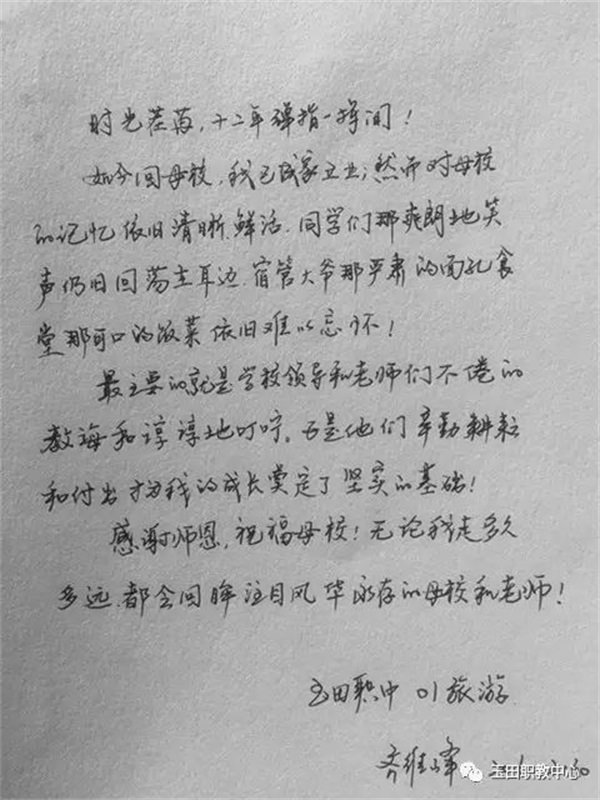 时光荏苒，十二年弹指一挥间！
如今回母校，我已成家立业；然而对母校
的记忆依旧清晰、鲜活．同学们那爽朗地笑
声仍旧回荡在耳边．宿管大爷那严肃的面孔食
堂那可口的饭菜依旧难以忘怀！
最主要的就是学校领导和老师们不倦的
教诲和谆谆地叮咛。正是他们辛勤耕耘
和付出才为我的成长奠定了坚实的基础！
感谢师恩，祝福母校！无论我走多久
多远．都会回眸注目风华永存的母校和老师！
玉田职中 01旅游
齐维峰
玉田职教中心